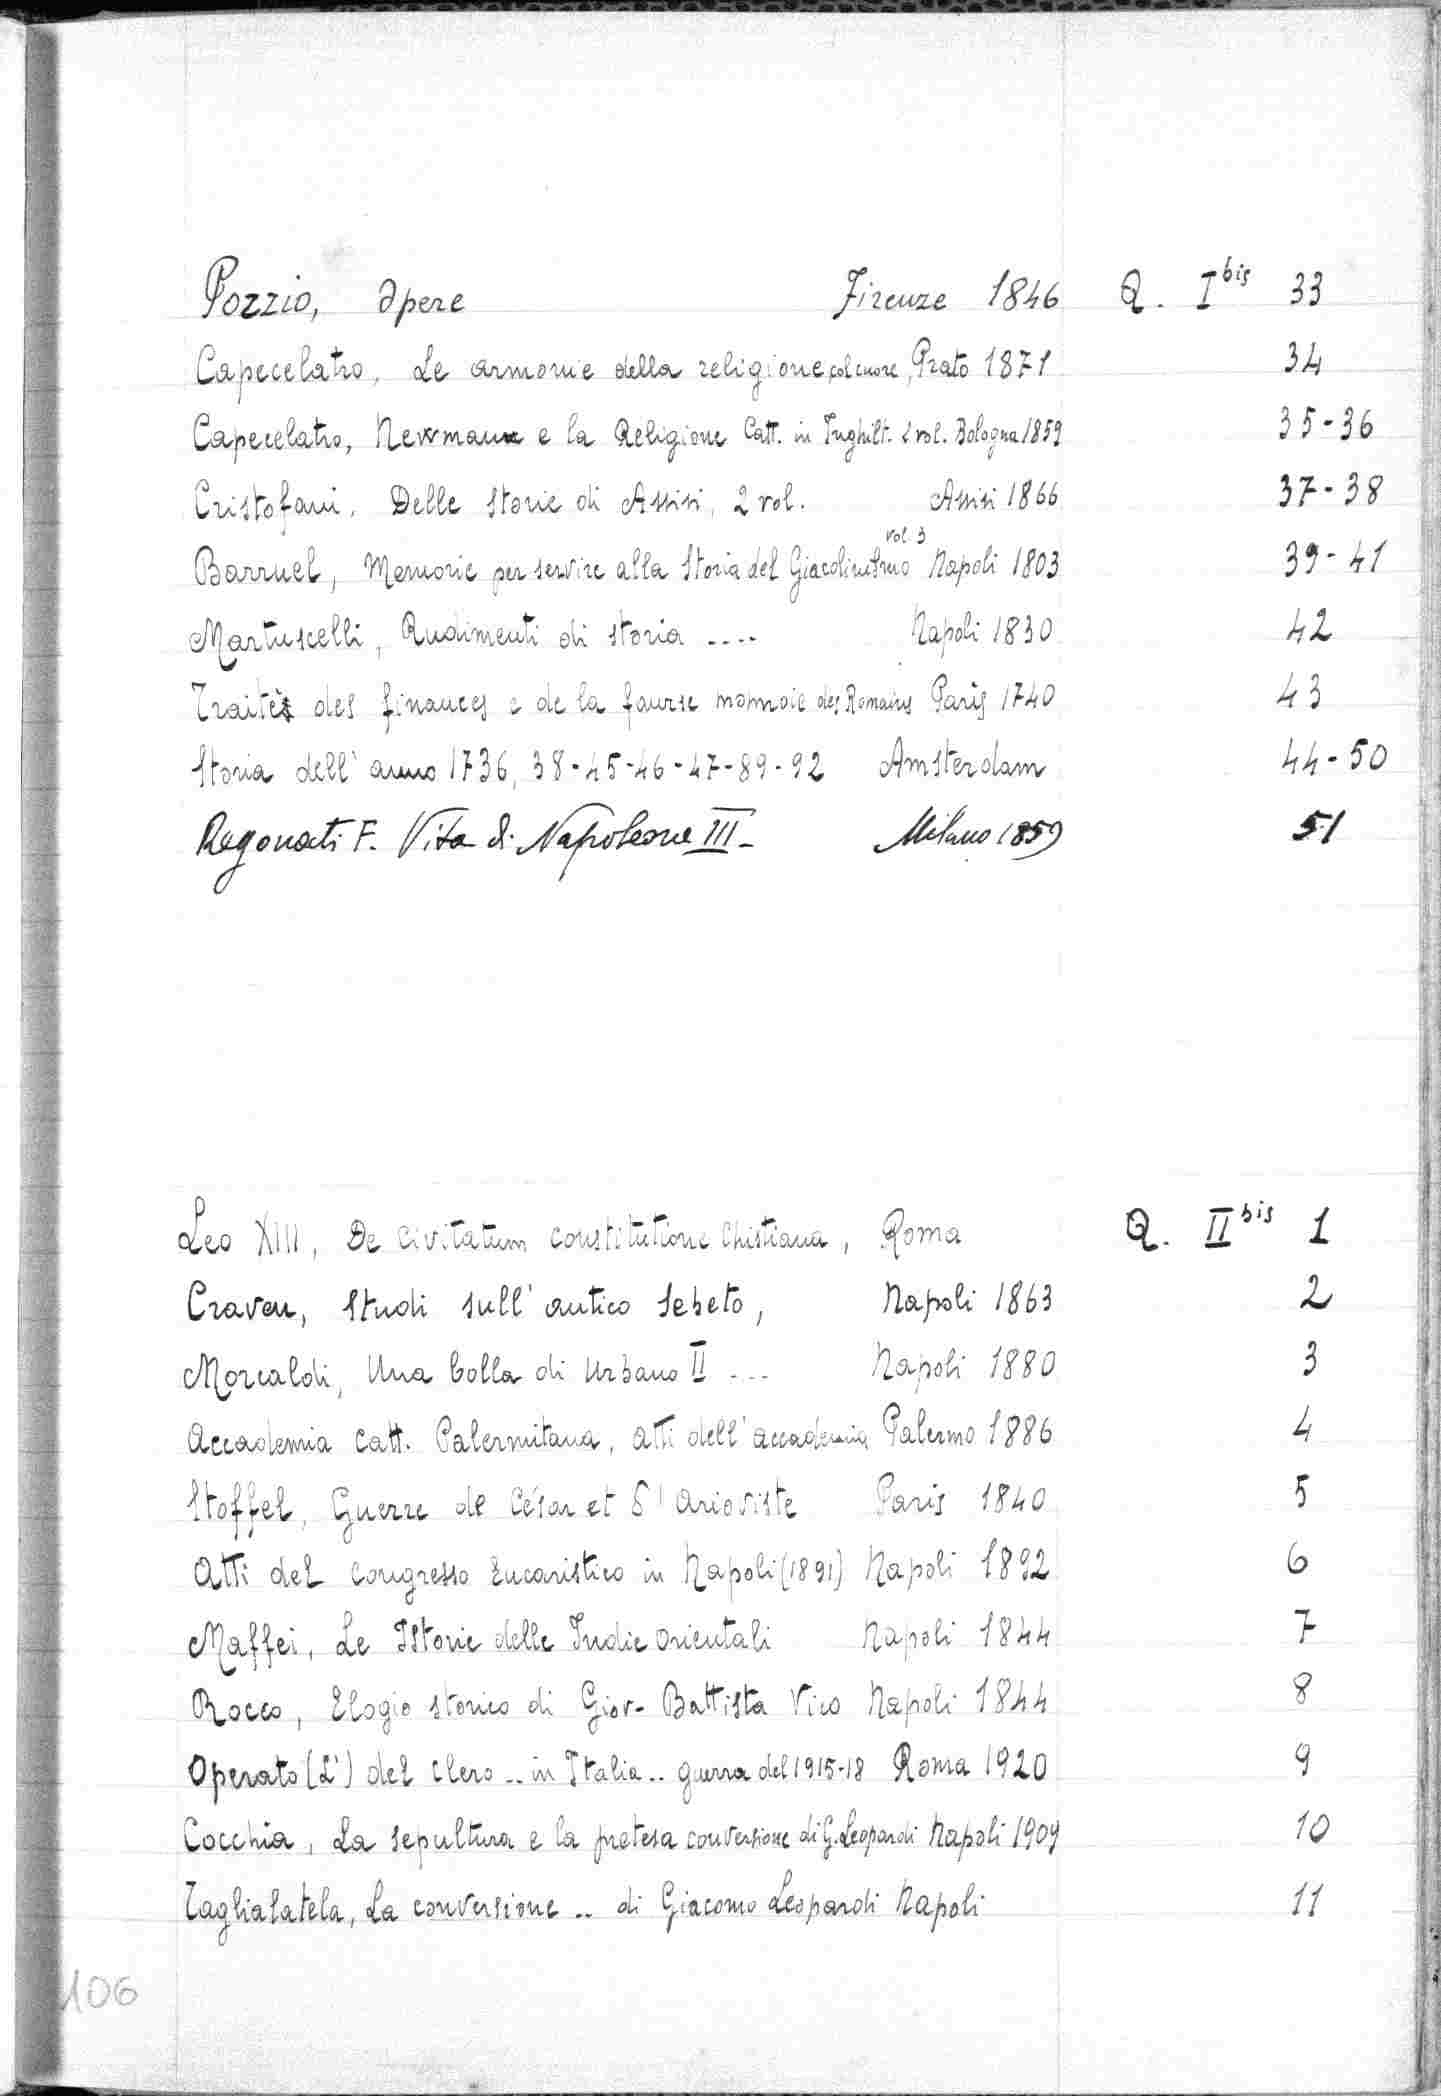 Pozzio, Opere Firenze 1846 Q. I bis 33
Capecelatro, Le armonie della religione col cuore, Prato 1871 34
Capecelatro, Newman e la Religione Catt. in Inghilt. 2 vol. Bologna 1859 35-36
Cristofani, Delle storie di Assisi, 2 vol. Assisi 1866 37-38
Barruel, Memorie per servire alla Storia del Giacobinismo vol. 3 Napoli 1803 39-41
Martuscelli, Rudimenti di storia .... Napoli 1830 42
Traitès des finances e de la fausse monnoie des Romains Paris 1740 43
Storia dell' anno 1736, 38-45-46-47-89-92 Amsterdam 44-50
Regonati F. Vita di Napoleone III - Milano 1859 51
Leo XIII, De civitatum constitutione Chistiana, Roma Q. II bis 1
Craven, Studi sull' antico Sebeto, Napoli 1863 2
Morcaldi, Una bolla di Urbano II ... Napoli 1880 3
Accademia Catt. Palermitana, atti dell' accademia Palermo 1886 4
Stoffel, Guerre de César et d' Arioviste Paris 1840 5
Atti del Congresso Eucaristico in Napoli (1891) Napoli 1892 6
Maffei, Le Istorie delle Indie Orientali Napoli 1844 7
Rocco, Elogio storico di Giov- Battista Vico Napoli 1844 8
Operato (L') del clero .. in Italia .. guerra del 1915-18 Roma 1920 9
Cocchia, La sepultura e la pretesa conversione di G. Leopardi Napoli 1909 10
Taglialatela, La conversione .. di Giacomo Leopardi Napoli 11
106